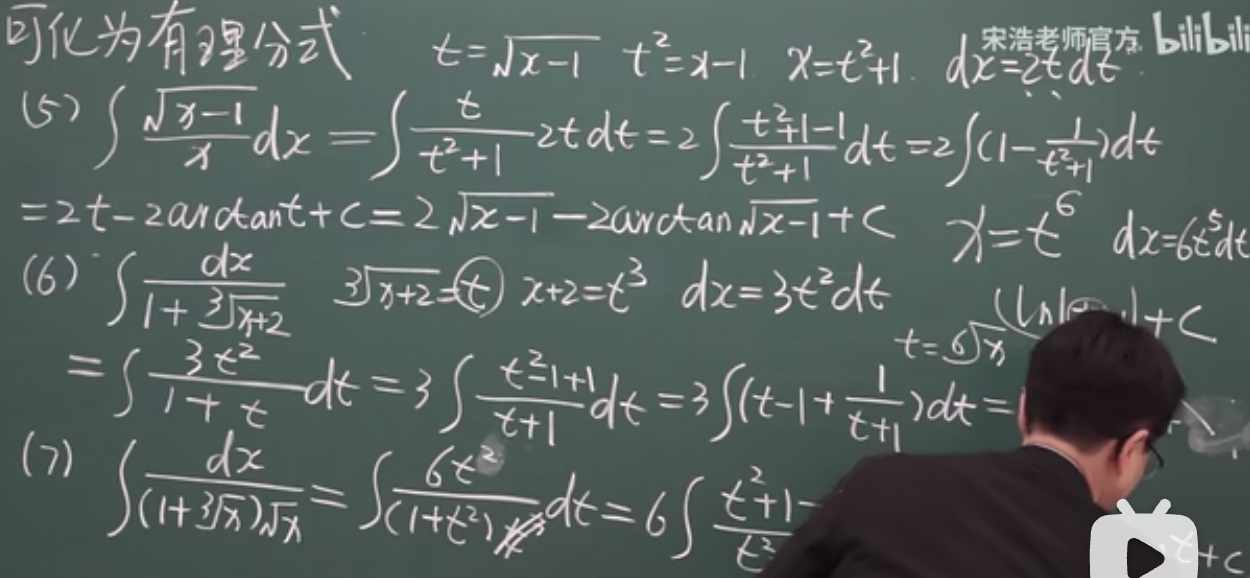 可化为有理分式 t=√(x-1) t²=x-1 x=t²+1 dx=2tdt
宋浩老师官方 bilibili
(5) ∫ √(x-1)/x dx = ∫ t/(t²+1) 2tdt = 2∫ (t²+1-1)/(t²+1) dt = 2∫(1-1/(t²+1))dt
=2t-2arctant+C=2√(x-1)-2arctan√(x-1)+C x=t⁶ dx=6t⁵dt
(6) ∫ dx/(1+∛(x+2)) ∛(x+2)=t x+2=t³ dx=3t²dt
+C
t=⁶√x
=∫ 3t²/(1+t) dt = 3∫ (t²-1+1)/(t+1) dt = 3∫(t-1+1/(t+1))dt =
(7) ∫ dx/((1+∛x)√x) = ∫ 6t²/(1+t²) dt = 6∫ t²+1-
t+C